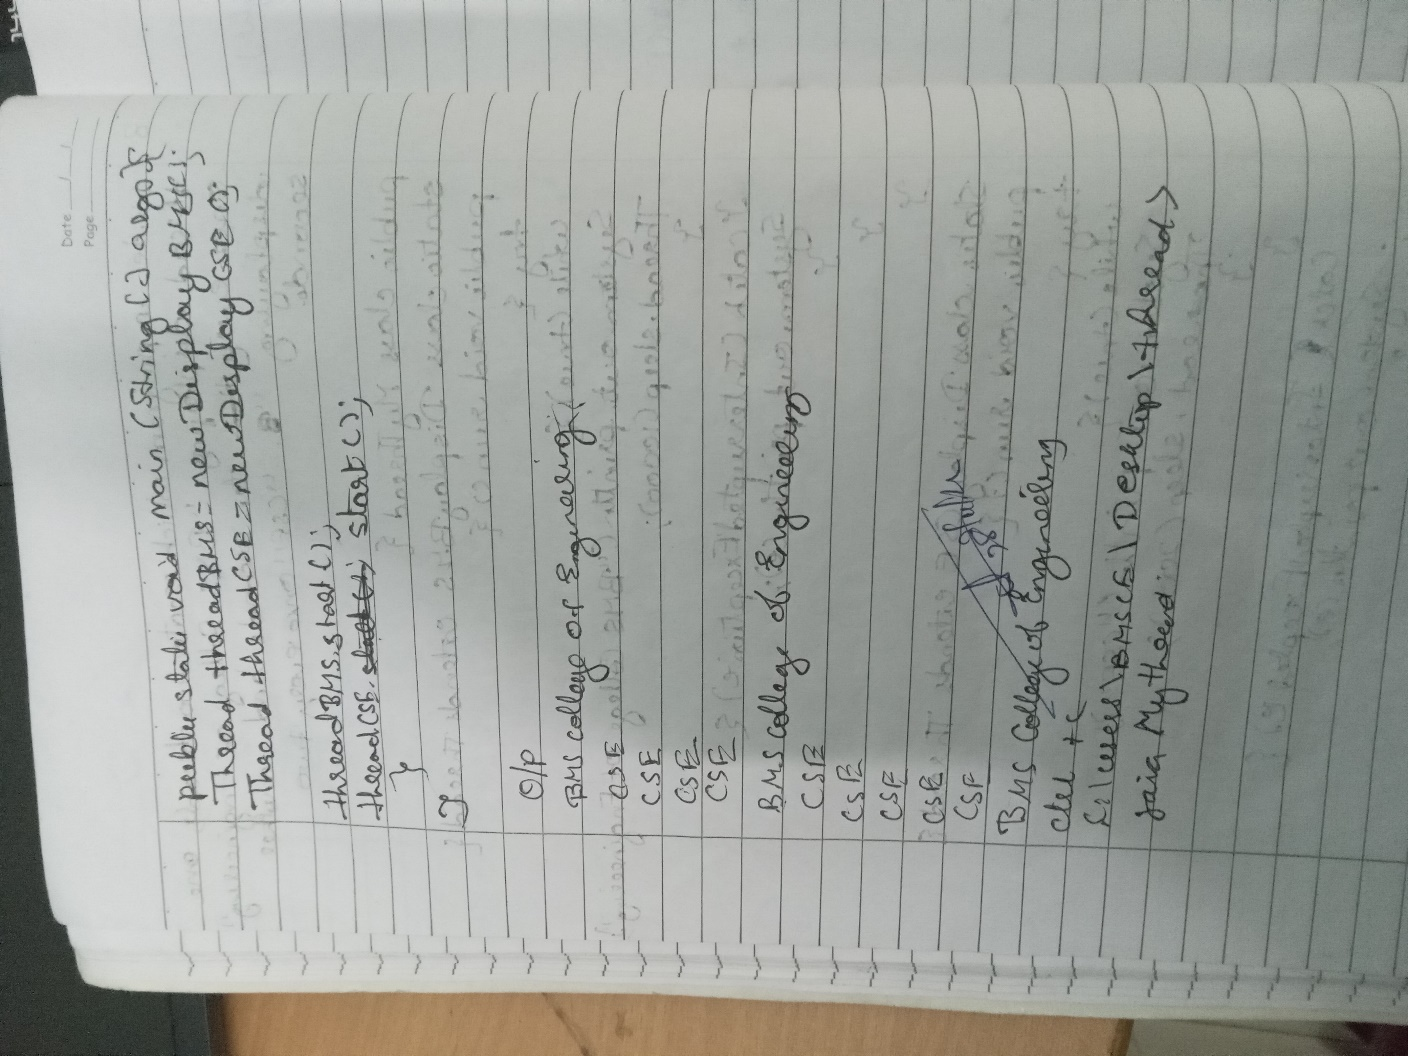 Date
Page
public static void main (String [] args) {
Thread threadBMS = new DisplayBMS();
Thread threadCSE = new DisplayCSE();
threadBMS.start();
threadCSE. start();
}
}
O/P
BMS College of Engineering
CSE
CSE
CSE
CSE
BMS College of Engineering
CSE
CSE
CSE
CSE
CSE
BMS College of Engineering
ctrl + c
C:\users\BMSCE\Desktop\thread>
java Mythread